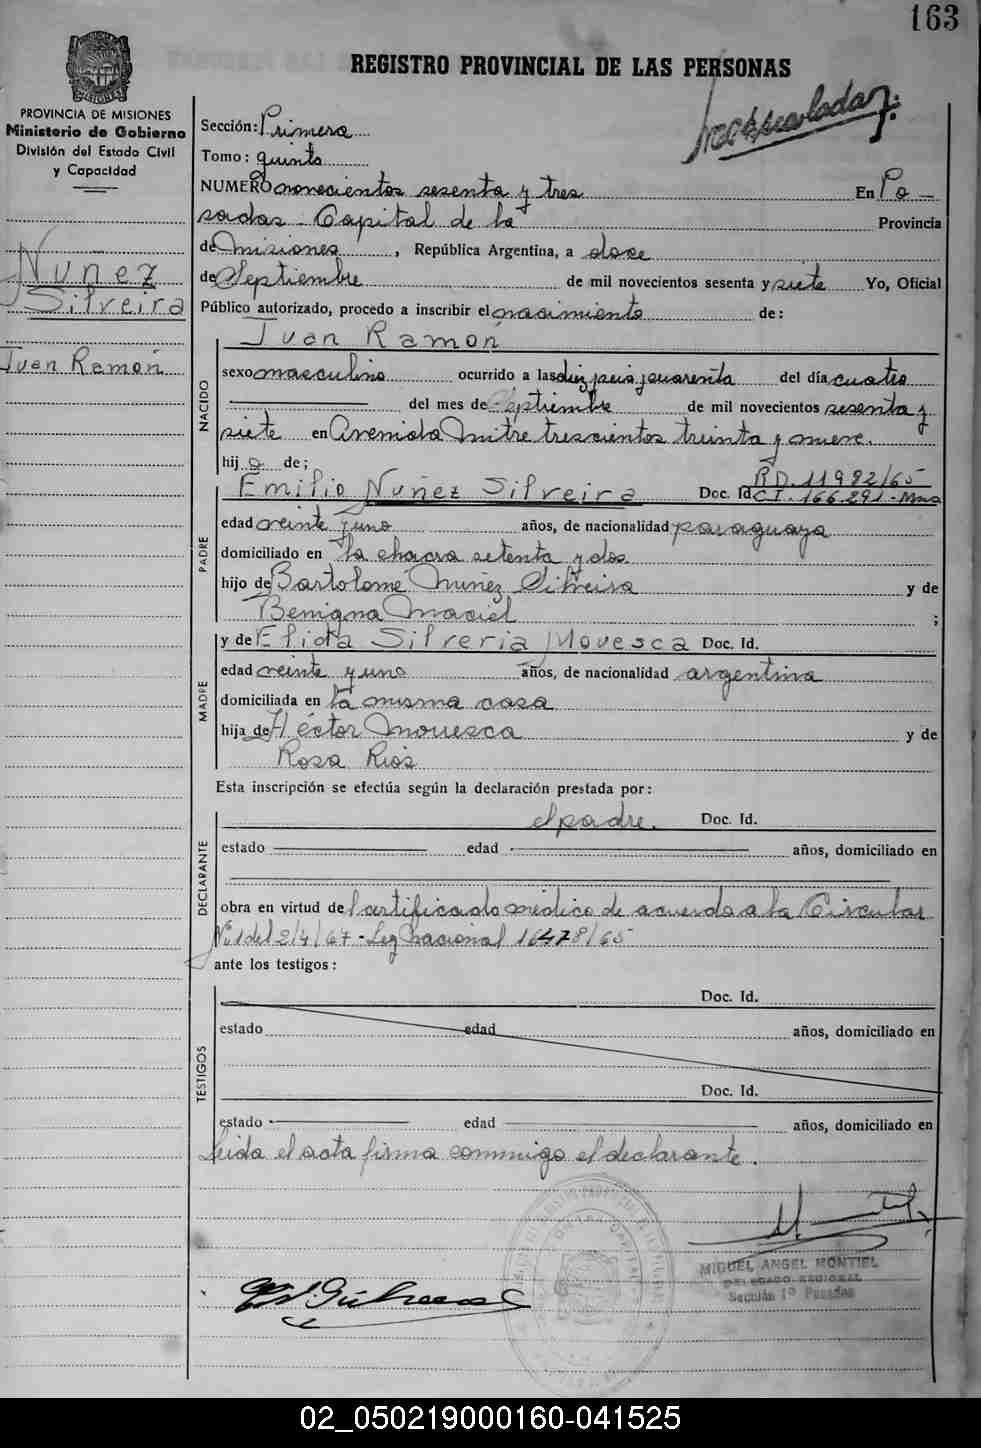 163
REGISTRO PROVINCIAL DE LAS PERSONAS
PROVINCIA DE MISIONES
Ministerio de Gobierno
División del Estado Civil
y Capacidad
Nuñez
Silveira
Juan Ramón
Sección: Primera
Tomo: quinto
NUMERO novecientos sesenta y tres En Po-
sadas - Capital de la Provincia
de Misiones, República Argentina, a doce
de Septiembre de mil novecientos sesenta y siete Yo, Oficial
Público autorizado, procedo a inscribir el nacimiento de:
Juan Ramón
NACIDO
sexo masculino ocurrido a las diez, seis y cuarenta del día cuatro
del mes de Septiembre de mil novecientos sesenta y
siete en Avenida Mitre trescientos treinta y nueve.
hijo de;
PADRE
Emilio Nuñez Silveira Doc. Id. R.D. 11982/65
C.I. 166.291 - Mnes
edad veinte y uno años, de nacionalidad paraguaya
domiciliado en la chacra setenta y dos
hijo de Bartolome Nuñez Silveira y de
Benigna Maciel ;
MADRE
y de Elida Silveria Movesca Doc. Id.
edad veinte y uno años, de nacionalidad argentina
domiciliada en la misma casa
hija de Héctor Mouesca y de
Rosa Rios
Esta inscripción se efectúa según la declaración prestada por:
DECLARANTE
el padre. Doc. Id.
estado edad años, domiciliado en
obra en virtud de Certificado médico de acuerdo a la Circular
Nº 1 del 2/4/67 - Ley Nacional 16478/65
ante los testigos:
TESTIGOS
Doc. Id.
estado edad años, domiciliado en
Doc. Id.
estado edad años, domiciliado en
Leida el acta firma conmigo el declarante.
MIGUEL ANGEL MONTIEL
DELEGADO REGIONAL
Sección 1º Posadas
02_050219000160-041525